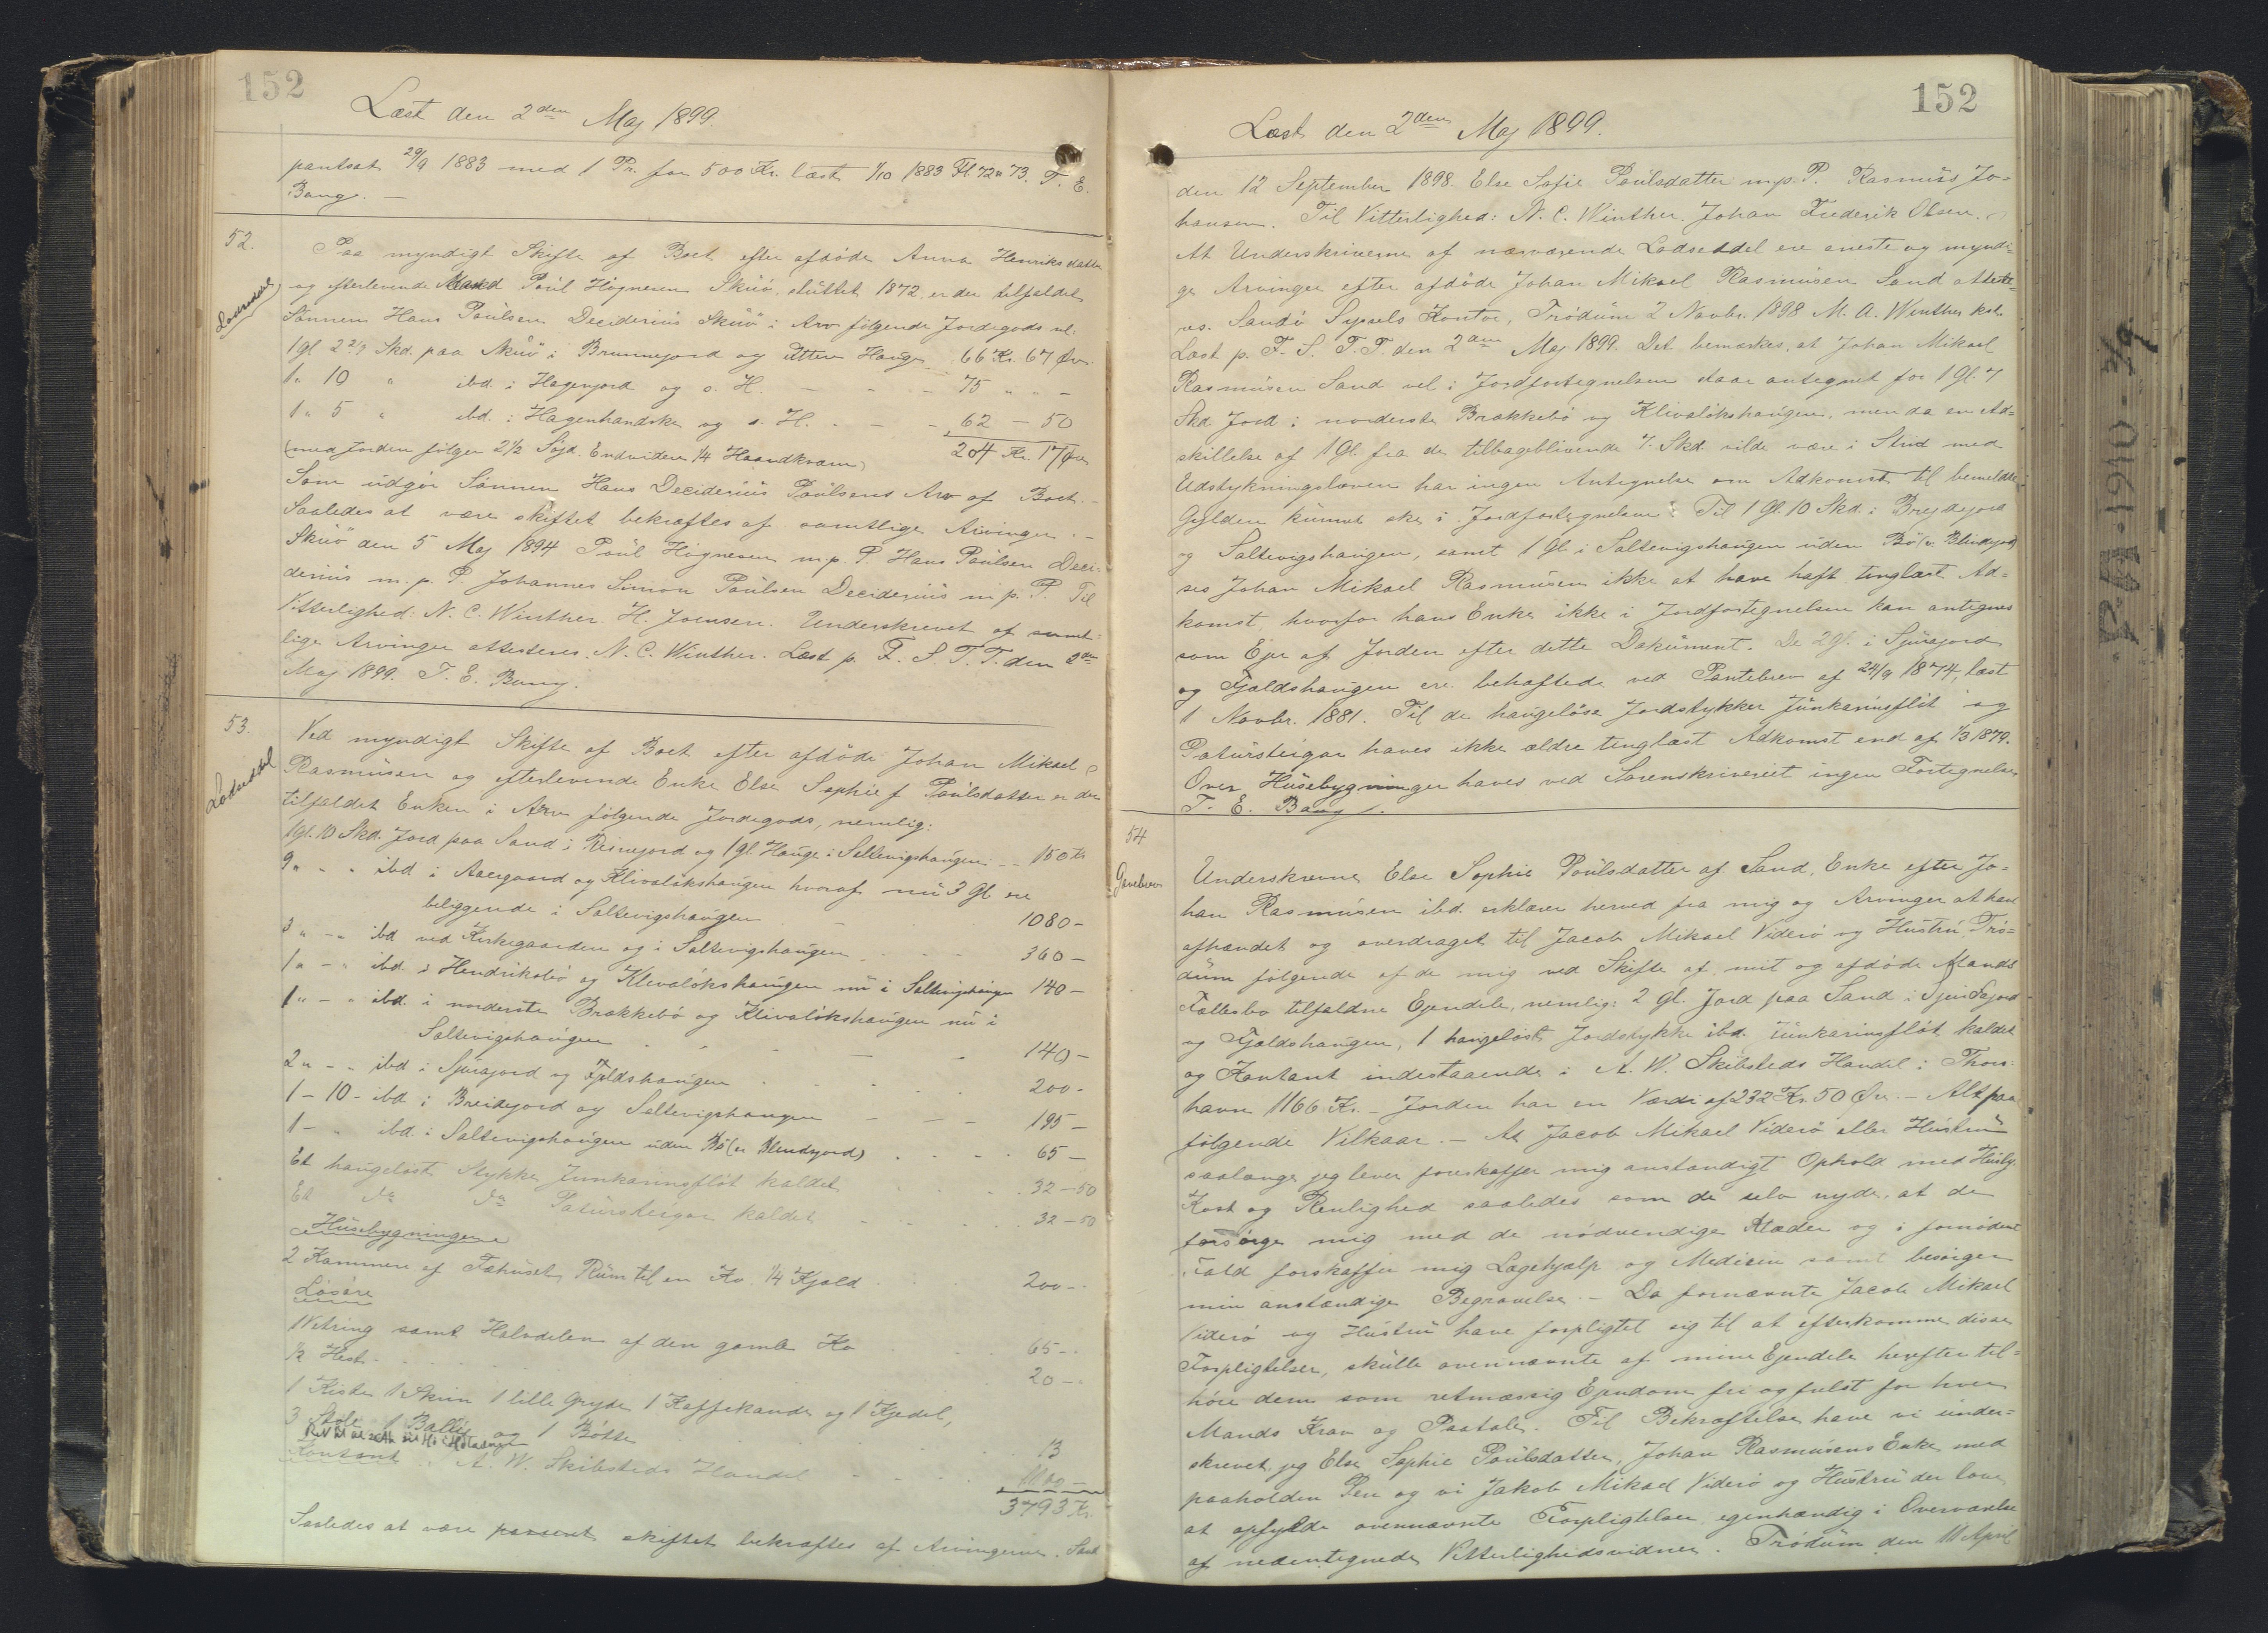 152
Læst den 2den Maj 1899.
pantsat 29/9 1883 med 1 Pr. for 500 Kr. læst 1/10 1883 Fl. 72 a 73. T. E.
Bang. —
52.
Lodseddel
Paa myndigt Skifte af Boet efter afdöde Anna Henriksdatter
og efterlevende Mand Poul Högnesen Skuö, sluttet 1872, er der tilfaldet
Sönnen Hans Poulsen Deciderius Skuö i Arv følgende Jordegods vl.
1 gl. 2 2/3 Skd. paa Skuö i Brunnejord og Uttere Hauge 66 Kr. 67 Øre
1 " 10 " ibd. i Hagenjord og s. H. — — 75 " " —
1 " 5 " ibd. i Hagenhandske og s. H. — — 62 — 50
(med Jorden følger 2 1/2 Söjd. Endvidere 1/4 Haandkværn) 204 Kr. 17 Øre
Som udgör Sönnen Hans Deciderius Poulsens Arv af Boet. —
Saaledes at være skiftet bekræftes af samtlige Arvinger. —
Skuö den 5 Maj 1894 Poul Högnesen m.p. P. Hans Poulsen Deci-
derius m. p. P. Johannes Simon Poulsen Deciderius m. p. P. Til
Vitterlighed: N. C. Winther. H. Joensen. Underskrevet af samt-
lige Arvinger attesteres. N. C. Winther. Læst p. F. S. T. T. den 2den
Maj 1899. T. E. Bang.
53.
Lodseddel
Ved myndigt Skifte af Boet efter afdöde Johan Mikael
Rasmusen og efterlevende Enke Else Sophie f. Poulsdatter er der
tilfaldet Enken i Arv følgende Jordegods, nemlig:
1 gl. 10 Skd. Jord paa Sand i Reinejord og 1 gl. Hauge i Saltevigshaugen — — 150 Kr
9 " - " ibd i Aaergaard og Klivalökshaugen hvoraf nu 3 Gl. ere
beliggende i Saltevigshaugen — 1080 —
3 " - " ibd ved Kirkegaarden og i Saltevigshaugen — — 360 —
1 " - " ibd. i Hendriksbö og Klevalökshaugen nu i Saltevigshaugen 140 —
1 " - " ibd. i norderste Brækkebö og Klivalökshaugen nu i
Saltevigshaugen — — 140 —
2 " - " ibd i Sjurajord og Fjoldshaugen . . . 200 -
1 - 10 - ibd i Breidejord og Saltevigshaugen — — 195 —
1 - " ibd. i Saltevigshaugen uden Bö (er Blindjord) . . . . 65 —
Et haugelöst Stykke Junkarinsflöt kaldet . . . . 32 — 50
Et do do Patursteigar kaldet . . . . 32 — 50
Husebygningerne
2 Kammere af Fæhuset, Rum til en Ko 1/4 Kjæld . . . 200 - .
Lösöre
1 Vetring samt Halvdelen af den gamle Ko . . . 65 - .
1/2 Hest . . . . 20 - .
1 Kiste 1 Skrin 1 lille Gryde 1 Kaffekande og 1 Kjedel,
3 Stole 1 Ballie og 1 Bötte . . . . 13
Kontant i A. W. Skibsteds Handel — . . . .
3793 Kr.
Saaledes at være passeret skiftet bekræftes af Arvingerne. Sand
152
Læst den 2den Maj 1899.
den 12 September 1898. Else Sofie Poulsdatter m.p. P. Rasmus Jo-
hansen. Til Vitterlighed: N. C. Winther. Johan Frederik Olsen.
At Underskriverne af nærværende Lodseddel ere eneste og myndi-
ge Arvinger efter afdöde Johan Mikael Rasmusen Sand atteste-
res. Sandö Syssels Kontor, Tródum 2 Novbr. 1898 M. A. Winther kst.
Læst p. F. S. T. T. den 2den Maj 1899. Det bemærkes, at Johan Mikael
Rasmusen Sand vel i Jordfortegnelsen staar antegnet for 1 Gl. 7
Skd Jord i norderste Brækkebö og Klivalökshaugen, men da en Ad-
skillelse af 1 Gl. fra de tilbageblivende 7 Skd. vilde være i Strid med
Udstykningsloven har ingen Antegnelse om Adkomst til bemeldte
Gylden kunnet ske i Jordfortegnelsen. Til 1 Gl. 10 Skd. i Brejdejord
og Saltevigshaugen, samt 1 Gl. i Saltevigshaugen uden Bö (er Blindjord)
ses Johan Mikael Rasmusen ikke at have haft tinglæst Ad-
komst, hvorfor hans Enke ikke i Jordfortegnelsen kan antegnes
som Ejer af Jorden efter dette Dokument. De 2 gl. i Sjurajord
og Fjoldshaugen ere behæftede ved Pantebrev af 24/9 1874, læst
1 Novbr. 1881. Til de haugelöse Jordstykker Junkarinsflöt og
Patursteigar haves ikke ældre tinglæst Adkomst end af 1/3 1879.
Over Husebygninger haves ved Sorenskriveriet ingen Fortegnelse.
T. E. Bang.
54
Gavebrev
Underskrevne Else Sophie Poulsdatter af Sand, Enke efter Jo-
han Rasmusen ibd. erklærer herved fra mig og Arvinger at have
afhændet og overdraget til Jacob Mikael Viderö og Hustru Tró-
dum følgende af de mig ved Skifte af mit og afdöde Mands
Fællesbo tilfaldne Ejendele, nemlig: 2 gl. Jord paa Sand i Sjurajord
og Fjoldshaugen, 1 haugelöst Jordstykke ibd. Junkarinsflöt kaldet
og Kontant indestaaende i A. W. Skibsteds Handel i Thors-
havn 1166 Kr. — Jorden har en Værdi af 232 Kr. 50 Øre. — Alt paa
følgende Vilkaar. — At Jacob Mikael Viderö eller Hustru
saalænge jeg lever foreskaffer mig anstændigt Ophold med Husly
Kost og Renlighed saaledes som de selv nyde, at de
forsörge mig med de nödvendige Klæder og i fornödent
Fald forskaffer mig Lægehjælp og Medicin samt besörger
min anstændige Begravelse. — Da fornævnte Jacob Mikael
Viderö og Hustru have forpligtet sig til at efterkomme disse
Forpligtelser, skulle ovennævnte af mine Ejendele herefter til-
höre dem som retmæssig Ejendom fri og fulst for hver
Mands Krav og Paatale. Til Bekræftelse have vi under-
skrevet, jeg Else Sophie Poulsdatter, Johan Rasmusens Enke med
paaholden Pen og vi Jakob Mikael Viderö og Hustru der love
at opfylde ovennævnte Forpligtelser, egenhændig i Overværelse
af nedentegnede Vitterlighedsvidner. Tródum den 11 April